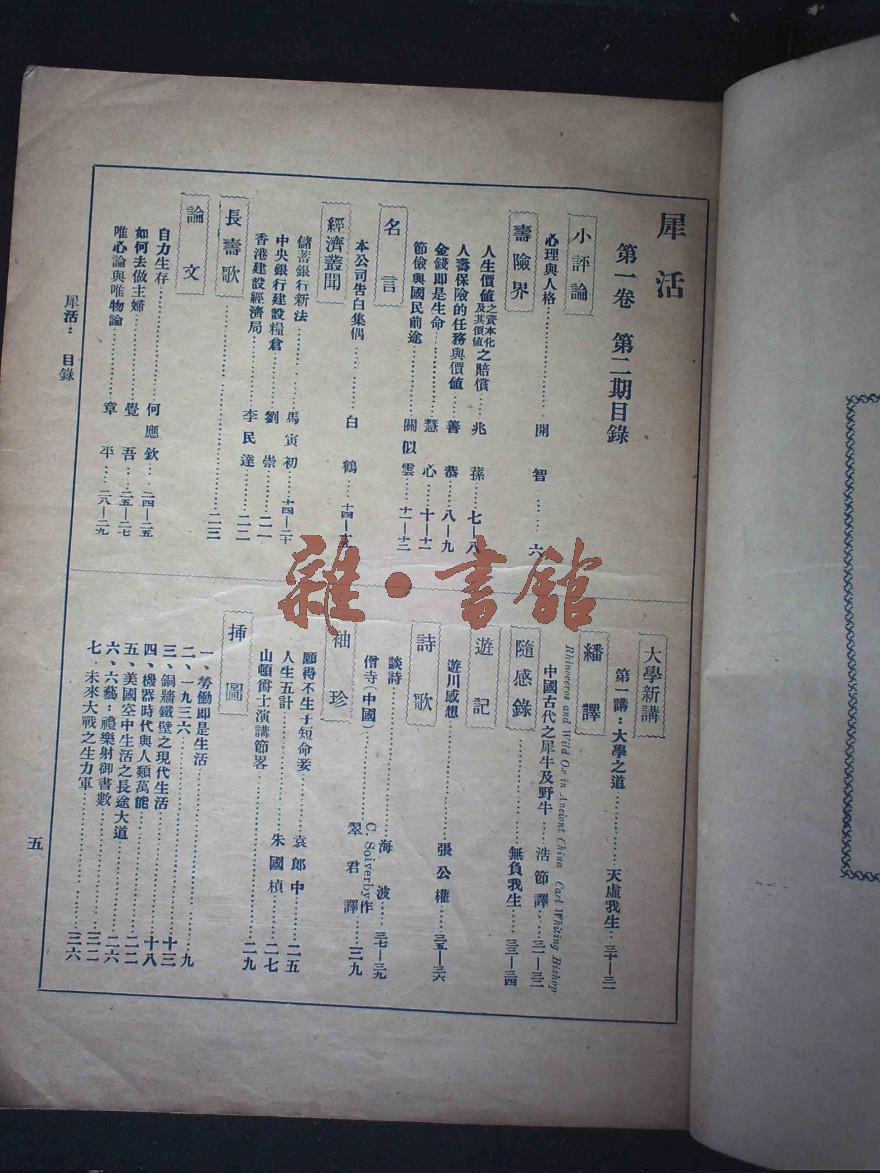 犀活
第一卷 第二期目錄
小評論
心理與人格………開智……六
壽險界
人生價値之資本化及其價値之賠償……兆蓀…七—八
人壽保險的任務與價値…善恭…八—九
金錢即是生命………慧心…十—十一
節儉與國民前途………關似雲…十一—十二
名言
本公司告白集偶………白鶴…十四—十五
經濟叢聞
儲蓄銀行新法………馬寅初…十四—二十
中央銀行建設糧倉………劉崇…二一
香港建設經濟局………李民達…二二
長壽歌………二三
論文
自力生存………何應欽…二四—二五
如何去做主婦………覺吾…二五—二七
唯心論與唯物論………章平…二八—二九
大學新講
第一講：大學之道………天虛我生…三十—三一
繙譯
Rhinoceros and Wild Ox in Ancient China Carl Whiting Bishop
中國古代之犀牛及野牛…浩節譯…三一—三二
隨感錄………無負我生…三三—三四
遊記
遊川感想………張公權…三五—三六
詩歌
談詩………海波…三七—三九
僧寺(中國)………C. Soiverby作
翠君譯…三九
袖珍
願得不生于短命妾………袁郎中…二五
人生五計………朱國楨…二七
山頓衛士演講節畧………二九
插圖
一、勞働即是生活………九
二、一九三六………十三
三、銅牆鐵壁之現代生活………十八
四、機器時代與人類萬能………二二
五、美國空中生活之長途大道………二六
六、六藝：禮樂射御書數………三二
七、未來大戰之生力軍………三六
犀活： 目錄
五
雜·書館